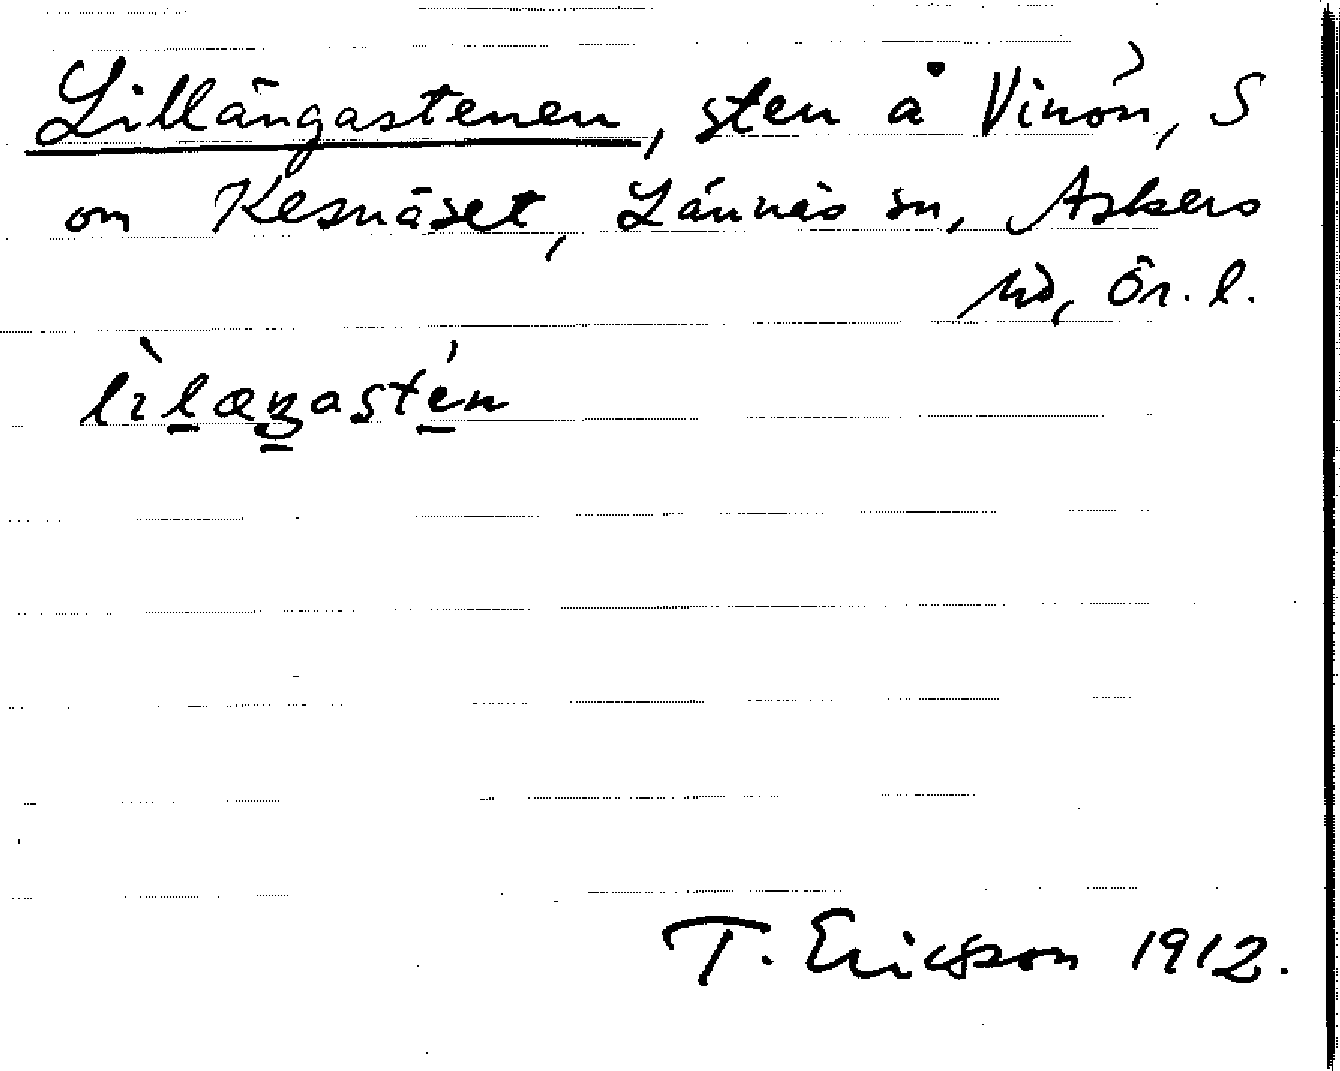 Lillängastenen, sten å Vinön, S
om Kesnäset, Lännäs sn, Askers
hd, Ör. l.
lìlæŋastén
T. Ericsson 1912.